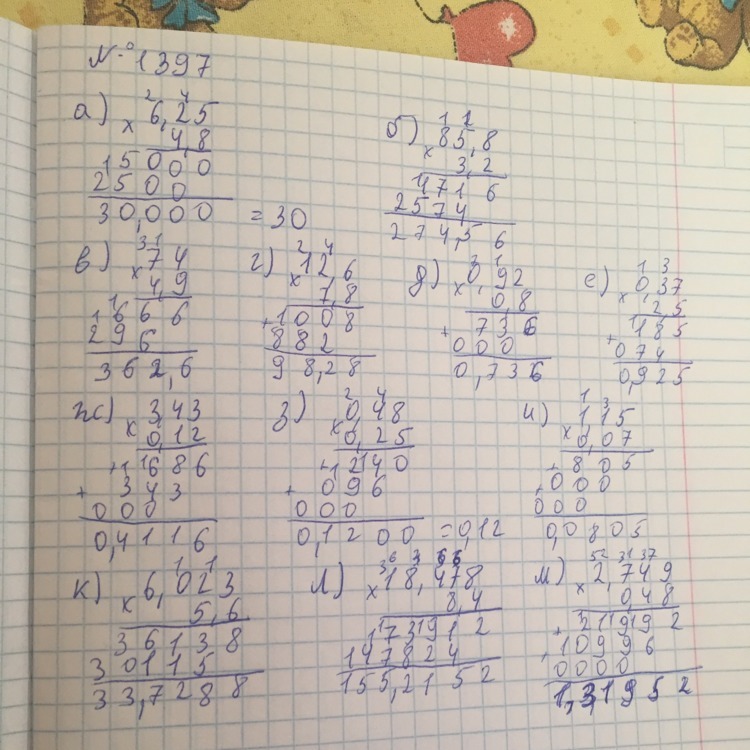 № 1397
а) 6,25
× 4,8
15000
2500
30,000 = 30
б) 85,8
× 3,2
1716
2574
274,56
в) 74
× 4,9
666
296
362,6
г) 12,6
× 7,8
+ 1008
882
98,28
д) 0,92
× 0,8
+ 736
000
0,736
е) 0,37
× 2,5
+ 185
074
0,925
ж) 3,43
× 0,12
+ 1686
+ 343
000
0,41116
з) 0,48
× 0,25
+ 240
+ 096
000
0,1200 = 0,12
и) 1,15
× 0,07
+ 805
+ 000
000
0,0805
к) 6,023
× 5,6
36138
30115
33,7288
л) 18,478
× 8,4
73912
147824
155,2152
м) 2,749
× 0,48
+ 21992
+ 10996
0000
1,31952